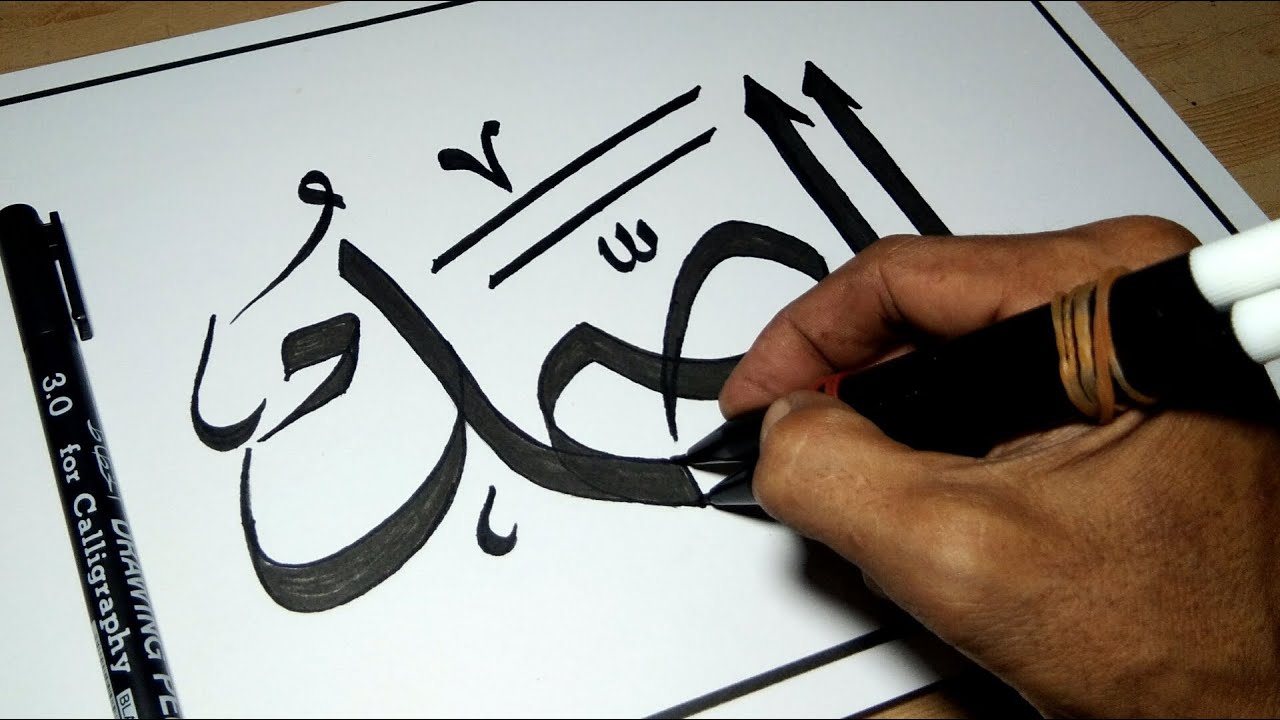 الصَّمَدُ
DRAWING PE
3.0 for Calligraphy